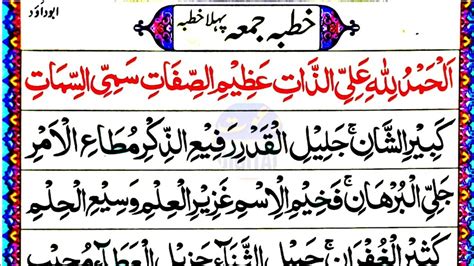 ابوداؤد
خطبہ جمعہ پہلا خطبہ
اَلْحَمْدُ لِلّٰهِ عَلِيِّ الذَّاتِ عَظِيْمِ الصِّفَاتِ سَمِيِّ السِّمَاتِ
كَبِيْرِ الشَّانِ جَلِيْلِ الْقَدْرِ رَفِيْعِ الذِّكْرِ مُطَاعِ الْاَمْرِ
جَلِيِّ الْبُرْهَانِ فَخِيْمِ الْاِسْمِ غَزِيْرِ الْعِلْمِ وَسِيْعِ الْحِلْمِ
كَثِيْرِ الْغُفْرَانِ جَمِيْلِ الثَّنَاءِ جَزِيْلِ الْعَطَاءِ مُجِيْبِ